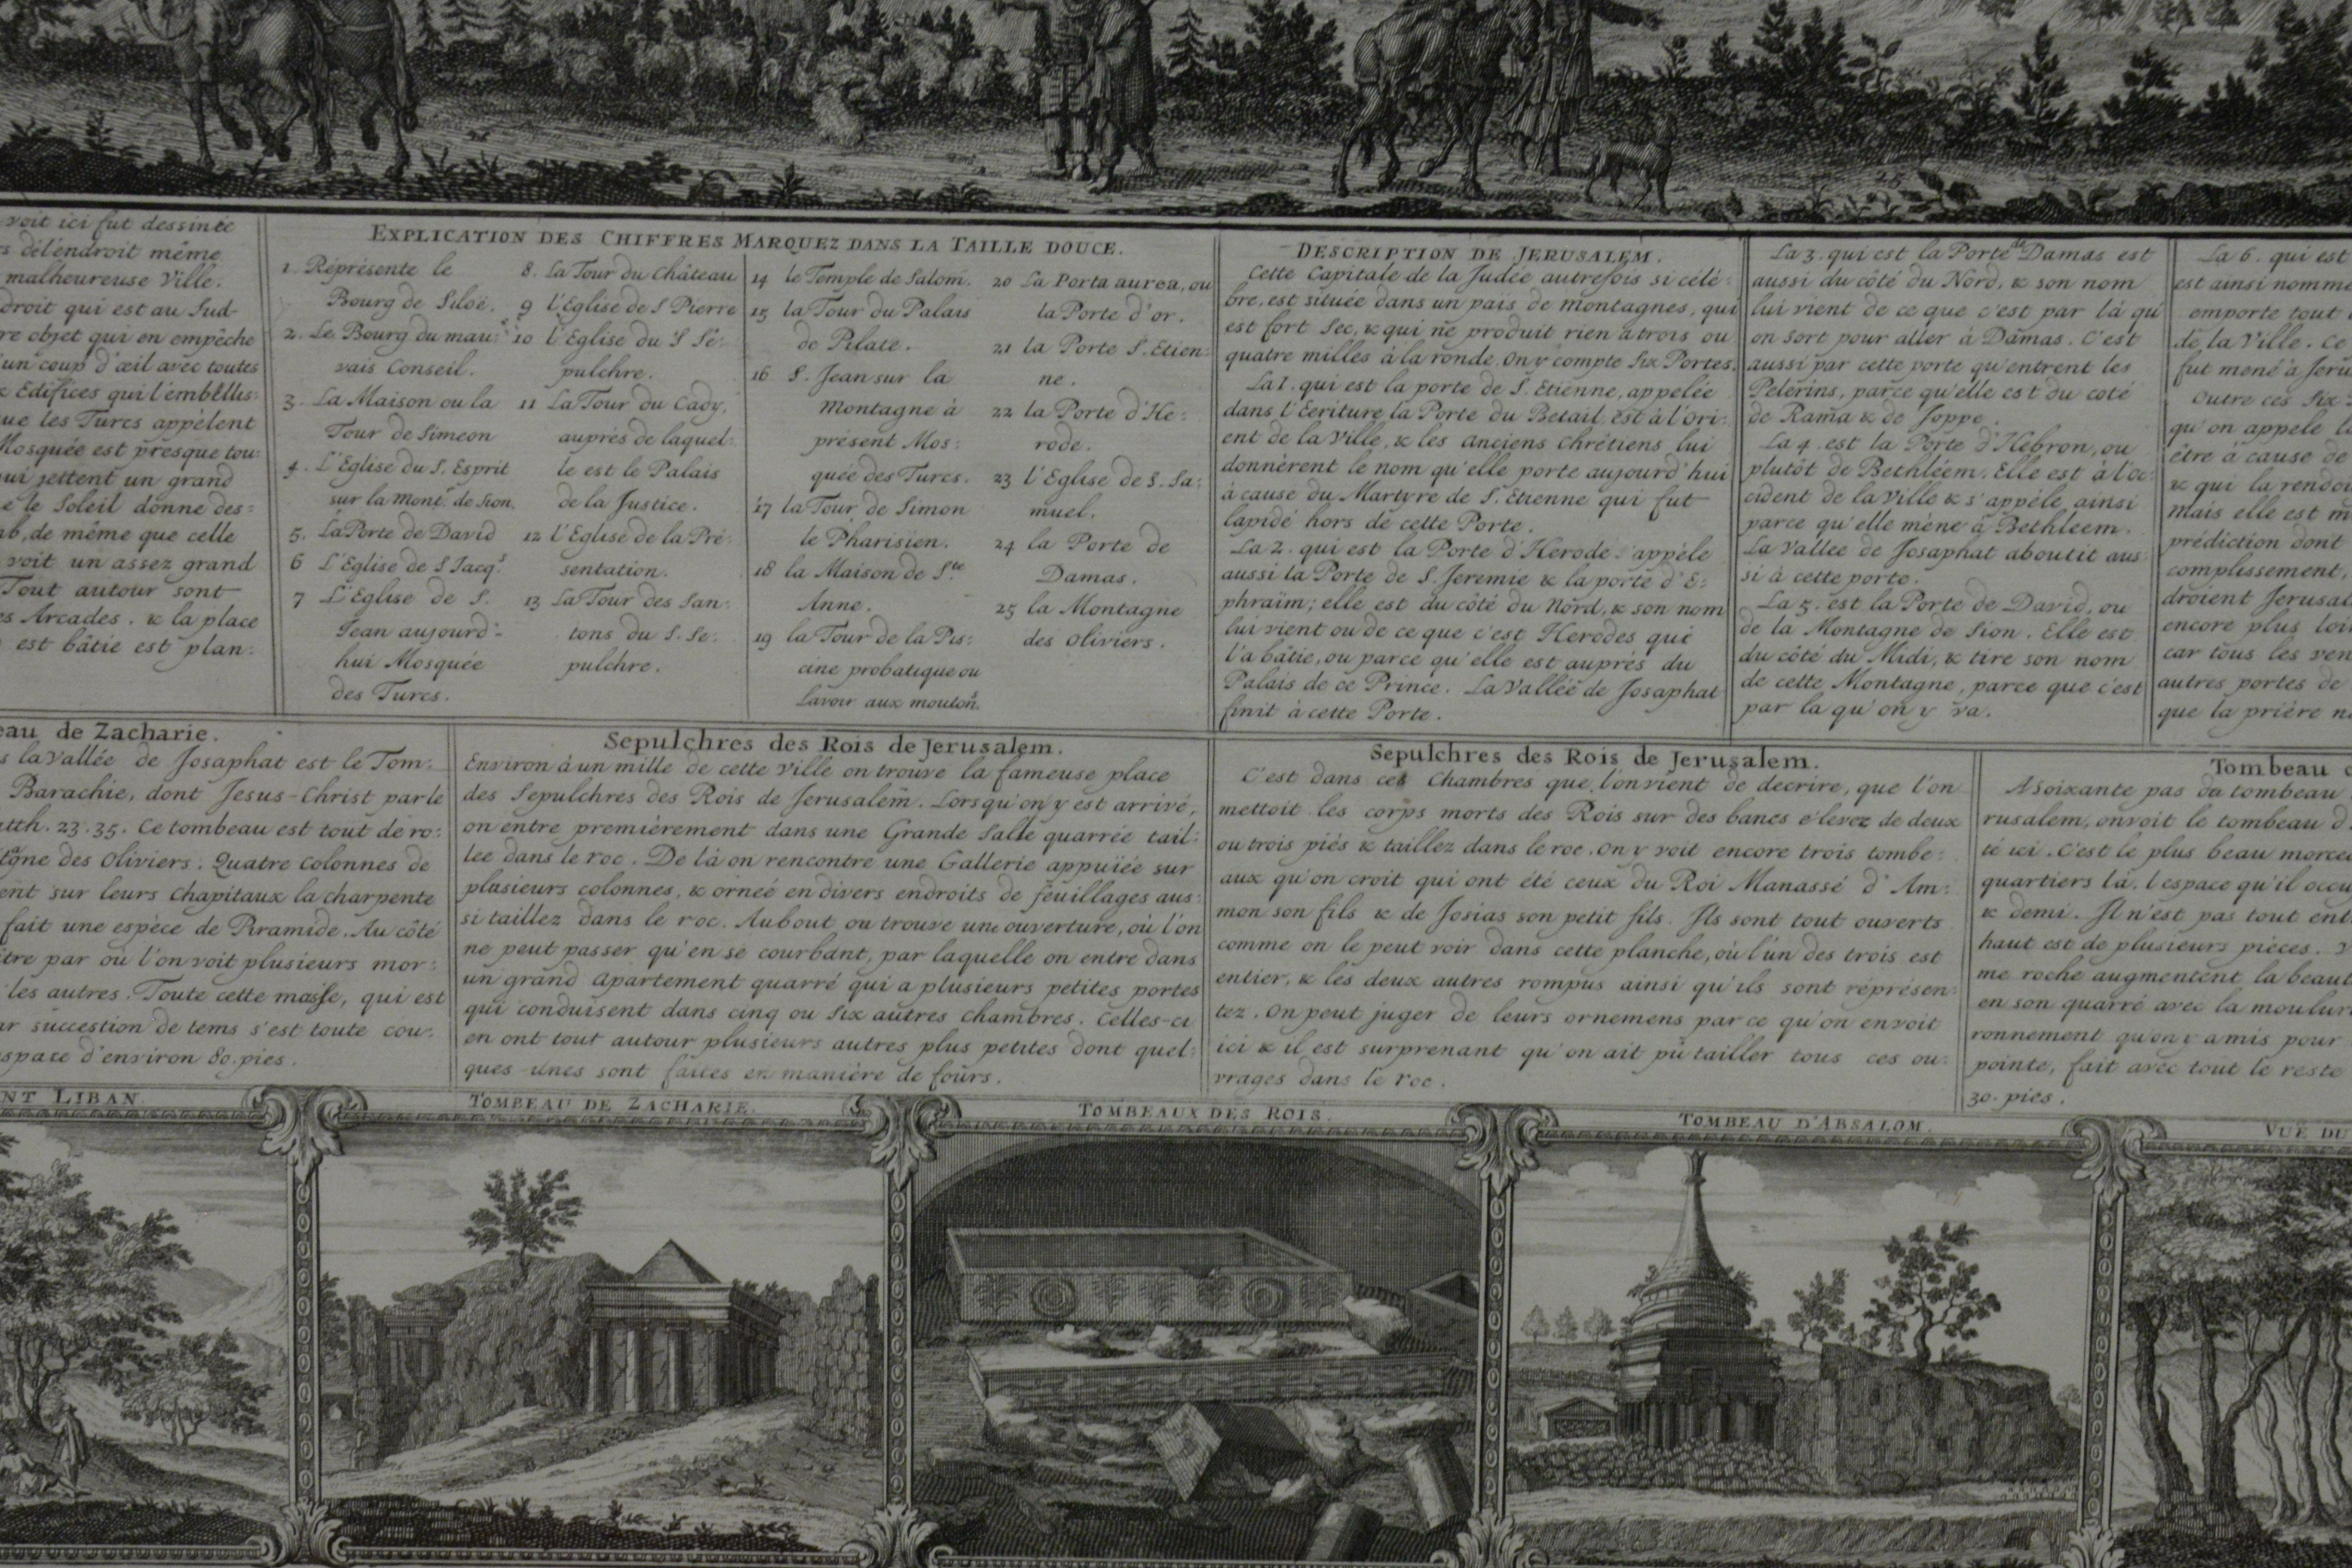 voit ici fut dessinée
s délendroit même
malheureuse Ville.
droit qui est au Sud-
re objet qui en empêche
un coup d'œil avec toutes
Edifices qui l'embéllis:
ue les Turcs appèlent
Mosquée est presque tou:
ui jettent un grand
e le Soleil donne des=
ab, de même que celle
voit un assez grand
Tout autour sont
es Arcades. & la place
est bâtie est plan:
EXPLICATION DES CHIFFRES MARQUEZ DANS LA TAILLE DOUCE.
1. Réprésente le
Bourg de Siloë.
2. Le Bourg du mau:
vais Conseil.
3. La Maison ou la
Tour de Simeon
4. L'Eglise du S. Esprit
sur la Mont. de Sion.
5. La Porte de David
6 L'Eglise de S Jacq.s
7 L'Eglise de S.
Jean aujourd'-
hui Mosquée
des Turcs.
8. La Tour du Château
9 l'Eglise de S Pierre
10 l'Eglise du S Sé:
pulchre.
11 La Tour du Cady,
auprés de laquel:
le est le Palais
de la Justice.
12 l'Eglise de la Pré:
sentation.
13 La Tour des San:
tons du S. Se:
pulchre.
14 le Temple de Salom.
15 la Tour du Palais
de Pilate.
16 S. Jean sur la
Montagne à
présent Mos:
quée des Turcs.
17 la Tour de Simon
le Pharisien.
18 la Maison de S.te
Anne.
19 la Tour de la Pis:
cine probatique ou
Lavoir aux mouton.s
20 La Porta aurea, ou
la Porte d'or.
21 la Porte S. Etien:
ne.
22 la Porte d'He:
rode.
23 l'Eglise de S. Sa:
muel.
24 la Porte de
Damas.
25 la Montagne
des Oliviers.
DESCRIPTION DE JERUSALEM.
Cette Capitale de la Judée autrefois si célé:
bre, est située dans un païs de montagnes, qui
est fort Sec, & qui ne produit rien a trois ou
quatre milles à la ronde. On y compte Six Portes.
La 1. qui est la porte de S. Etienne, appelée
dans l'Ecriture la Porte du Betail est à l'Ori:
ent de la Ville, & les Anciens Chrétiens lui
donnèrent le nom qu'elle porte aujourd'hui
à cause du Martyre de S. Etienne qui fut
lapidé hors de cette Porte.
La 2. qui est la Porte d'Herode s'appèle
aussi la Porte de S. Jeremie & la porte d'E:
phraïm; elle est du côté du Nord, & son nom
lui vient ou de ce que c'est Herodes qui
l'a bâtie, ou parce qu'elle est auprés du
Palais de ce Prince. La Vallée de Josaphat
finit à cette Porte.
La 3. qui est la Porte de Damas est
aussi du côté du Nord, & son nom
lui vient de ce que c'est par là qu'
on sort pour aller à Damas. C'est
aussi par cette porte qu'entrent les
Pelerins, parce qu'elle est du coté
de Rama & de Joppe.
La 4. est la Porte d'Hebron, ou
plutôt de Bethléem. Elle est à l'Oc:
cident de la Ville & s'appéle ainsi
parce qu'elle méne à Bethleem.
La Vallee de Josaphat aboutit aus:
si à cette porte.
La 5. est la Porte de David, ou
de la Montagne de Sion. Elle est
du côté du Midi, & tire son nom
de cette Montagne, parce que c'est
par la qu'on y va.
La 6. qui est
est ainsi nommé
emporte tout
de la Ville. Ce
fut mené à Jeru
Outre ces Six
qu'on appele
être à cause de
& qui la rendoi
mais elle est m
prédiction dont
complissement.
droient Jerusal
encore plus loi
car tous les ven
autres portes de
que la prière n
eau de Zacharie.
s la Vallée de Josaphat est le Tom:
Barachie, dont Jesus-Christ parle
atth. 23. 35. Ce tombeau est tout de ro:
tagne des Oliviers. Quatre Colonnes de
ent sur leurs Chapitaux la charpente
fait une espèce de Piramide. Au côté
tre par où l'on voit plusieurs mor:
les autres. Toute cette masse, qui est
ar succession de tems s'est toute cou:
space d'environ 80. pies.
Sepulchres des Rois de Jerusalem.
Environ à un mille de cette Ville on trouve la fameuse place
des Sepulchres des Rois de Jerusalem. Lorsqu'on y est arrivé,
on entre premièrement dans une Grande Salle quarrée tail:
lee dans le roc. De là on rencontre une Gallerie appuïée sur
plusieurs colonnes, & ornée en divers endroits de feuillages aus:
si taillez dans le roc. Au bout ou trouve une ouverture, où l'on
ne peut passer qu'en se courbant, par laquelle on entre dans
un grand Apartement quarré qui a plusieurs petites portes
qui conduisent dans cinq ou Six autres Chambres. Celles-ci
en ont tout autour plusieurs autres plus petites dont quel:
ques-unes sont faites en manière de fours.
Sepulchres des Rois de Jerusalem.
C'est dans ces Chambres que l'on vient de decrire, que l'on
mettoit les corps morts des Rois sur des bancs elevez de deux
ou trois piés & taillez dans le roc. On y voit encore trois tombe:
aux qu'on croit qui ont été ceux du Roi Manassé d'Am:
mon son fils & de Josias son petit fils. Ils sont tout ouverts
comme on le peut voir dans cette planche, où l'un des trois est
entier, & les deux autres rompus ainsi qu'ils sont réprésen:
tez. On peut juger de leurs ornemens par ce qu'on en voit
ici & il est surprenant qu'on ait pû tailler tous ces ou:
vrages dans le roc.
Tombeau
A soixante pas du tombeau
rusalem, on voit le tombeau d
té ici. C'est le plus beau morce
quartiers là. L'espace qu'il occu
& demi. Il n'est pas tout ent
haut est de plusieurs pièces.
me roche augmentent la beaut
en son quarré avec la moulur
ronnement qu'on y a mis pour
pointe, fait avec tout le reste
30. pies.
NT LIBAN.
TOMBEAU DE ZACHARIE.
TOMBEAUX DES ROIS.
TOMBEAU D'ABSALOM.
VUE DU